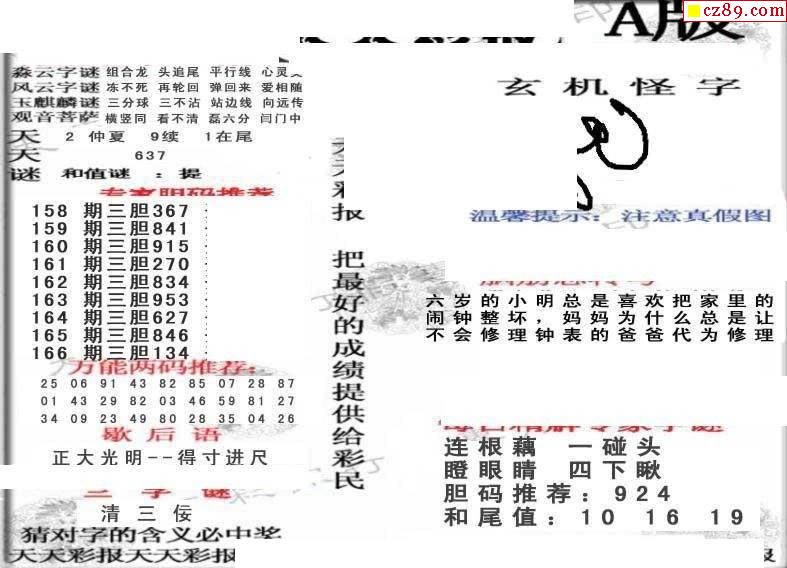 cz89.com
A版
天天彩报
森云字谜 组合龙 头追尾 平行线 心灵
风云字谜 冻不死 再轮回 弹回来 爱相随
玉麒麟谜 三分球 三不沾 站边线 向远传
观音菩萨 横竖同 看不清 磊六分 闫门中
天 2 仲夏 9续 1在尾
天 637
谜 和值谜 : 提
专家胆码推荐
158 期三胆367
159 期三胆841
160 期三胆915
161 期三胆270
162 期三胆834
163 期三胆953
164 期三胆627
165 期三胆846
166 期三胆134
万能两码推荐:
25 06 91 43 82 85 07 28 87
01 43 29 82 03 46 59 81 27
34 09 23 49 80 28 35 04 26
歇后语
正大光明--得寸进尺
三字谜
清三佞
猜对字的含义必中奖
天天彩报天天彩报
天彩报 把最好的成绩提供给彩民
玄机怪字
温馨提示: 注意真假图
脑筋急转弯
六岁的小明总是喜欢把家里的
闹钟整坏，妈妈为什么总是让
不会修理钟表的爸爸代为修理
每日精解专家字谜
连根藕 一碰头
瞪眼睛 四下瞅
胆码推荐: 924
和尾值: 10 16 19